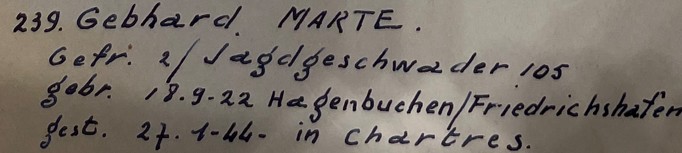 239. Gebhard. MARTE.
Gefr. 2/Jagdgeschwader 105
gebr. 18.9-22 Hagenbuchen/Friedrichshafen
gest. 27.1-44- in Chartres.